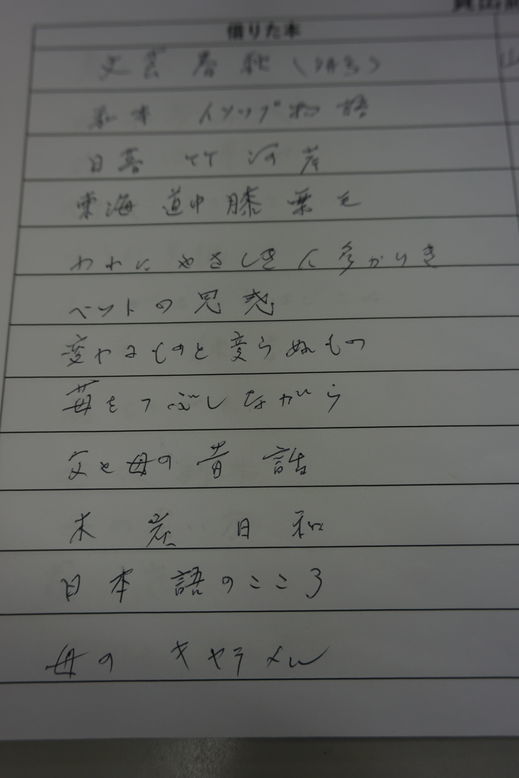 貸出
借りた本
文芸 春秋
私本 イソップ物語
日暮 竹河岸
東海道中膝栗毛
われにやさしき人多かりき
ベットの思惑
変わるものと変らぬもの
苺をつぶしながら
父と母の昔話
木炭日和
日本語のこころ
母のキャラメル